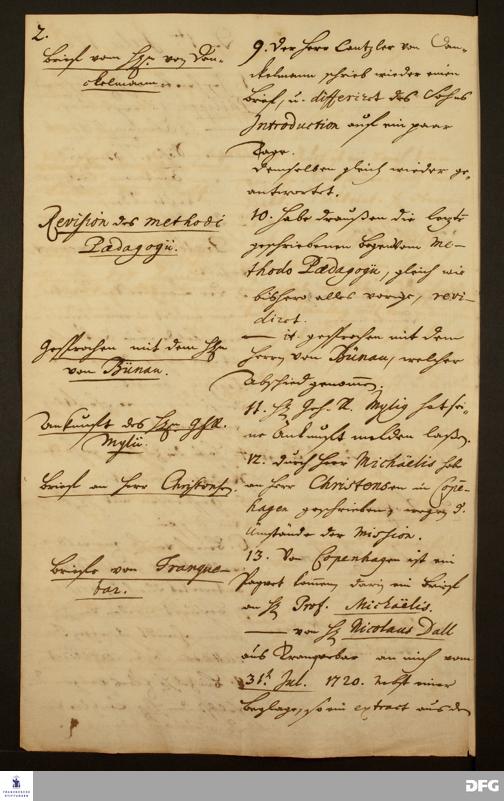 2.
Brief vom Hn. von Dan-
ckelmann.
9. Der Herr Cantzler von Dan-
ckelmann, schrieb wieder einen
Brief, u. differirt des Sohns
Introduction auf ein paar
Tage.
demselben gleich wieder ge-
antwortet.
Revision des methodi
Pædagogii.
10. Habe draußen die letzt
geschriebenen bogen vom Me-
thodo Pædagogii, gleich wie
bishero alles vorige, revi-
dirt.
Gesprochen mit dem Hn
von Bünau.
— it. gesprochen mit dem
Herrn von Bünau, welcher
Abschied genomen.
Ankunfft des Hn.
Mylii.
11. H. Mylig hat sei-
ne Ankunfft melden laßen.
Brief an Herr Christensen.
12. durch Herr Michaëlis habe
an Herr Christensen in Copen-
hagen geschrieben, wegen d.
Umstände der Mission.
Briefe von Tranque-
bar.
13. Von Copenhagen ist ein
Paquet kommen, darin ein Brief
an H. Prof. Michaëlis.
— von H. Nicolaus Dall
aus Tranquebar an mich vom
31t. Jul. 1720. nebst einer
Beylage, so ein extract aus dem
FRANCKESCHE
STIFTUNGEN
DFG